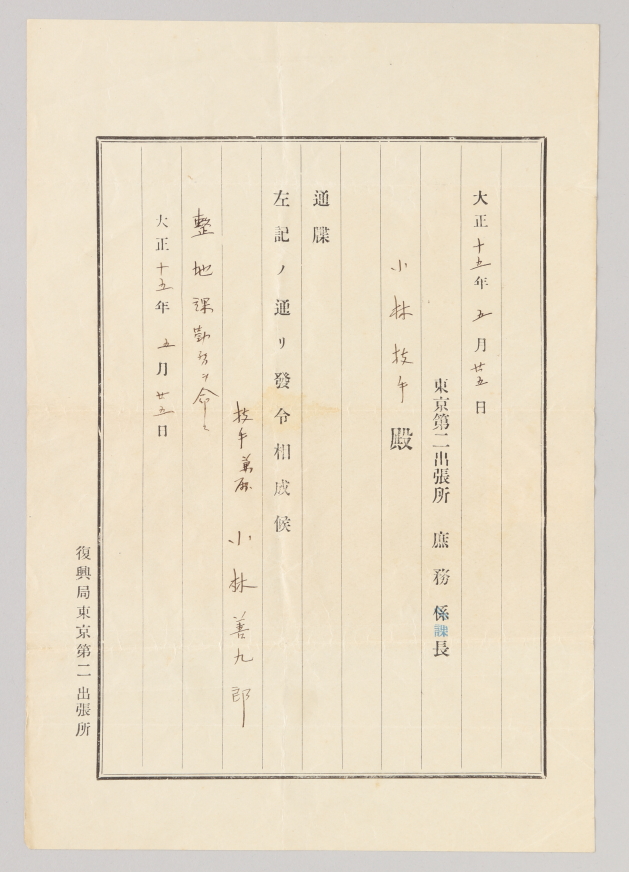 大正十五年五月廿五日
東京第二出張所 庶務係課長
小林技手殿
通牒
左記ノ通リ發令相成候
技手兼屬 小林善九郎
整地課勤務ヲ命ス
大正十五年五月廿五日
復興局東京第二出張所